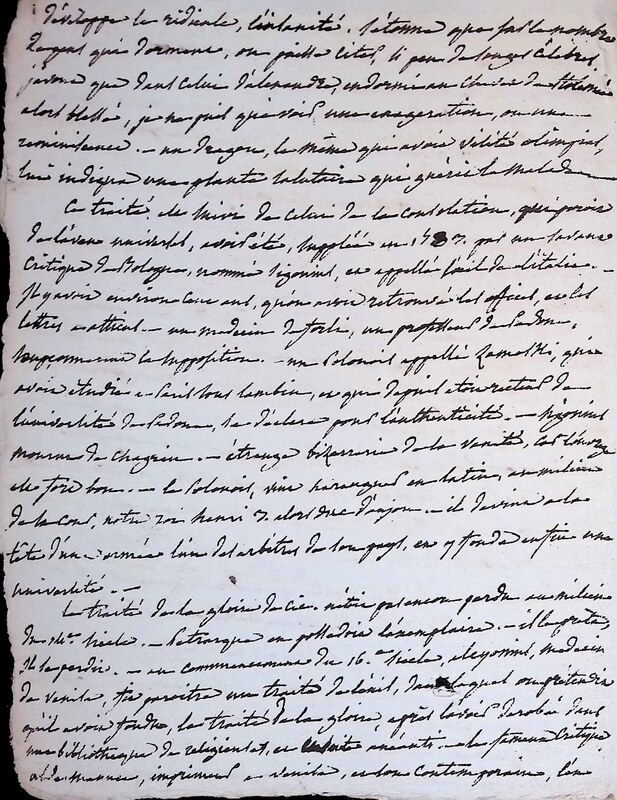 développe le ridicule, l'inanité. s'étonne que sur le nombre
de gens qui dorment, on puisse citer si peu de songes célèbres,
j'avoue que dans celui d'alexandre, endormi au chevet de Ptolemée
alors blessé, je ne puis que voir une exageration, ou une
reminiscence. - un dragon, le même qui avoit visité olimpias,
lui indiqua une plante salutaire qui guérit le malade
Ce traité, et suivi de celui de la consolation, qui parois
de l'aveu universel, avoir été, suppléé en 1583. par un savant
critique de Bologne, nommé sigonius, et appellé l'œil de l'italie. -
il y avoit environ cent ans, qu'on avoit retrouvé les offices, et les
lettres a atticus. - un medecin de forli, un professeur de Padoue,
soupçonnerent la supposition. - un Polonois appellé Zamoski, qui
avoit étudié a Paris sous lambin, et qui depuis étoit recteur de
l'université de Padoue, se déclara pour l'authenticité. - sigonius
mourut de chagrin. - étrange bizarrerie de la vanité, car l'ouvrage
est fort bon. - le Polonois, vint haranguer en latin, au milieu
de la cour, notre roi henri 3. alors duc d'anjou. - il devint a la
tête d'une armée l'un des arbitres de son pays, et y fonda enfin une
université. -
le traité de la gloire de cic. n'étoit pas encor perdu au milieu
du 14e. siècle. - Petrarque en possedoit l'exemplaire. - il le preta,
il se perdit. - au commencement du 16.e siècle, alcyonius, medecin
de venise, fit paroitre un traité de l'exil, dans lequel on prétendit
qu'il avoit fondu, le traité de la gloire, après l'avoir derobé dans
une bibliotheque de religieuses, et ensuite anéanti. - le fameux critique
alde manuce, imprimeur a venise, et son contemporain, l'en